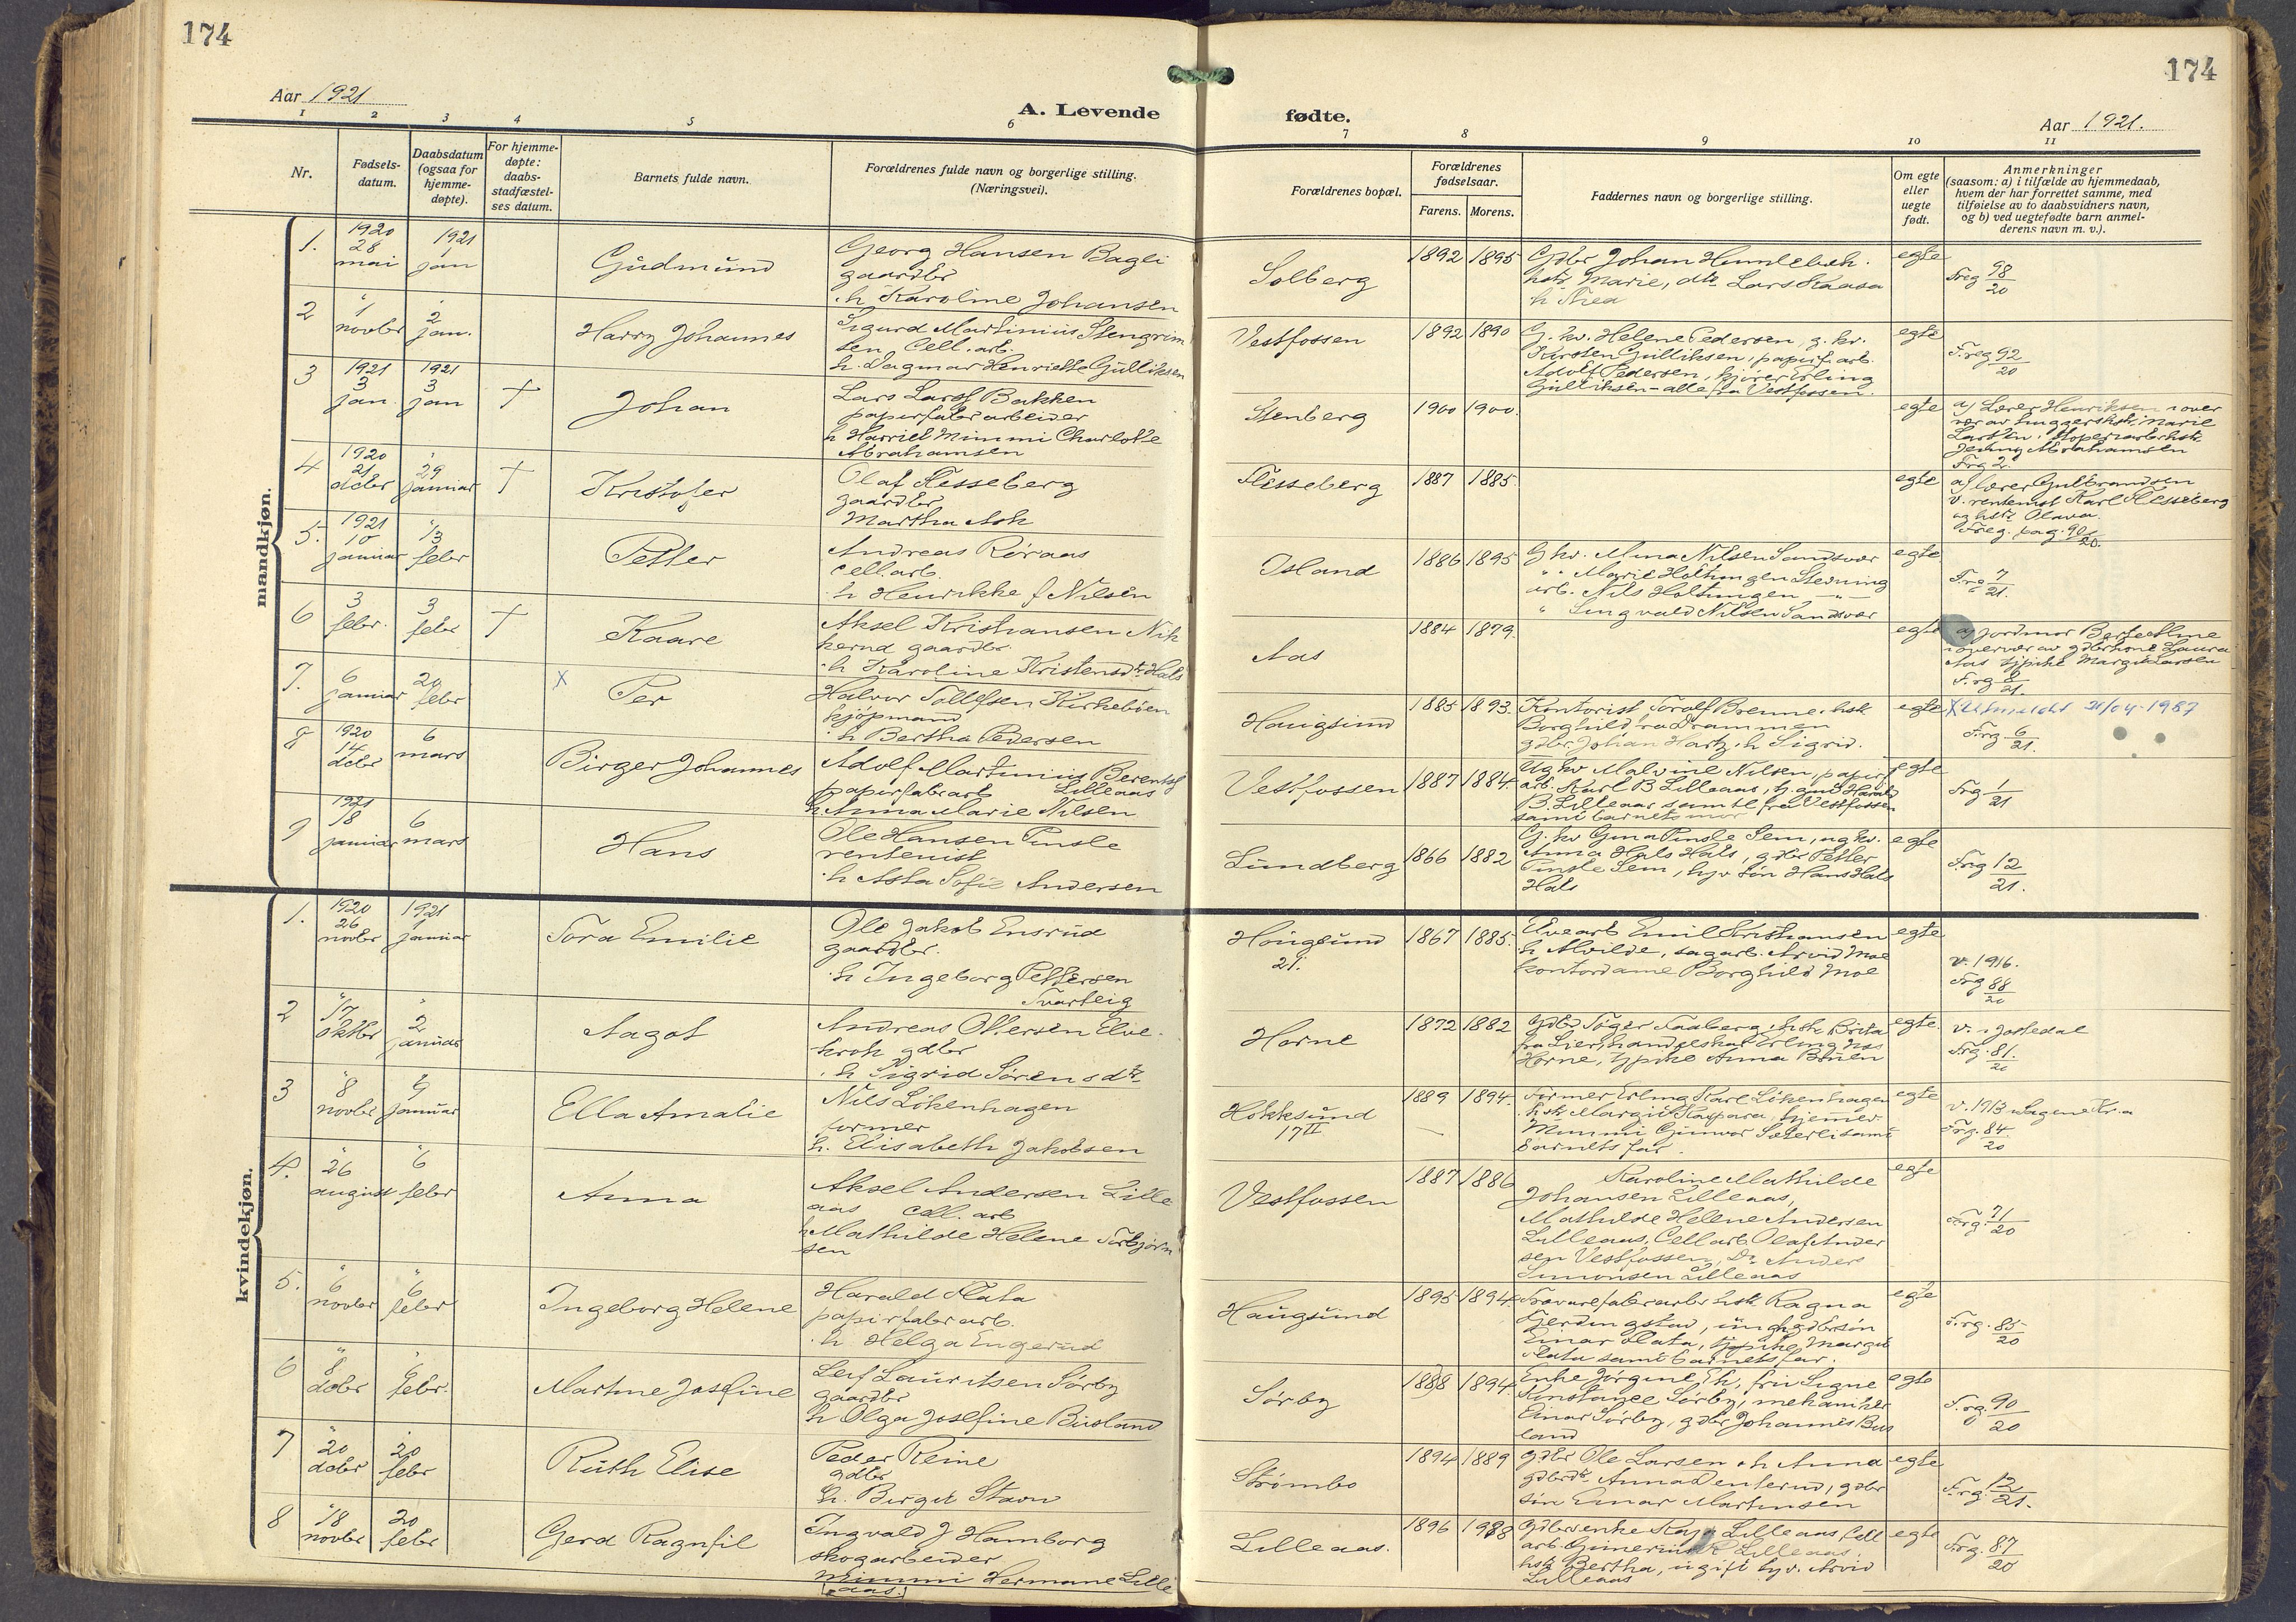 174
174
Aar 1921
A. Levende
fødte.
Aar 1921.
1 2 3 4 5 6 7 8 9 10 11
Nr.
Fødsels-
datum.
Daabsdatum
(ogsaa for
hjemme-
døpte).
For hjemme-
døpte:
daabs-
stadfæstel-
ses datum.
Barnets fulde navn.
Forældrenes fulde navn og borgerlige stilling.
(Næringsvei).
Forældrenes bopæl.
Forældrenes
fødselsaar.
Farens. Morens.
Faddernes navn og borgerlige stilling.
Om egte
eller
uegte
født.
Anmerkninger
(saasom: a) i tilfælde av hjemmedaab,
hvem der har forrettet samme, med
tilføielse av to daabsvidners navn,
og b) ved uegtefødte barn anmel-
derens navn m. v.).
mandkjøn.
1. 1920 28 mai 1921 jan
Gudmund
Georg Hansen Bagli
gaardbr
h. Karoline Johansen
Solberg 1892 1895
Gdbr Johan
hstr. Marie, Lars Kaasa
h Thea
egte
Freg 98/20
2 " 1 novbr " 2 jan.
Harry Johannes
Sigurd Martinius Stengrim
sen Cell. arb.
h. Dagmar Henriette Gulliksen
Vestfossen 1892 1890
G. kv. Helene Pedersen, g. kv.
Kirsten Gulliksen, papirf. arb.
Adolf Pedersen, kjører Erling
Gulliksen - alle fra Vestfossen.
egte
F.reg 92/20
3 1921 3 jan. 1921 3 jan †
Johan
Lars Larsf Bakken
papirfabr arbeider
h Harriet Mimmi Charlotte
Abrahamsen
Stenberg 1900 1900.
egte
a) Lærer Henriksen i over
vær av huggershstr. Marie
Larsen,
Jenny Abrahamsen
Frg 2
4 1920 21 decbr " 29 januar †
Kristofer
Olaf Flesseberg
gaardbr
Martha Ask
Flesseberg 1887 1885.
egte
a) lærer Gulbrandsen
v. rentenist Karl Flesseberg
og hstr. Olava.
Freg. pag. 90/20.
5. 1921 10 januar " 13 febr
Petter
Andreas Røraas
cell. arb.
h Henrikke f Nilsen
Island 1886 1895
G kv. Alma Nilsen Sandsvær
" " Marie Holtungen
arb. Nils Holtungen — " —
" Lingvald Nilsen Sandsvær
egte.
Frg 7/21.
6 3 febr. 3 febr †
Kaare
Aksel Kristiansen Nik
kerud gaardbr.
h Karoline Kristensdtr Hals
Aas 1884 1879.
egte
a) jordmor Berte Aline
i overvær av gdbrkone Laura
Aas tjpike Margit Larsen
F.rg 8/21.
7. 6 januar 20 febr
x Per
Halvor Tollefsen Kirkebøen
kjøpmand
h Bertha Pedersen
Haugsund 1885 1893.
Kontorist Torolf Brenne, hstr
Borghild fra Drammen
gdbr. Johan Hartz, h Sigrid.
egte
X Utmeldt 21/04-1987
F.rg 6/21.
8 1920 14 dcbr 6 mars
Birger Johannes
Adolf Martinius Berentsf
papirfabrarb Lilleaas
h. Anna Marie Nilsen
Vestfossen 1887 1884.
Ug kv Malvine Nilsen, papirf
arb. Karl B Lilleaas, Harald
B. Lilleaas samtl fra Vestfossen
samt barnets mor
egte
Frg 1/21
9 1921 18 januar 6 mars
Hans
Ole Hansen Tinsle
rentenist
h Asta Sofie Andersen
Lundberg 1866 1882
G. kv Gina Tinsle Sem, ug kv.
Anna Hals Hals, gdbr Petter
Tinsle Sem, hjv søn Hans Hals
Hals
egte
F.rg 12/21.
kvindekjøn.
1. 1920 26 novbr 1921 1 januar
Tora Emilie
Ole Jakob Ensrud
gaardbr.
h Ingeborg Pettersen
Svarteig
Haugsund 21. 1867 1885.
Elvearb Emil Kristiansen
h Alvilde, sagarb. Arvid Moe
kontordame Borghild Moe
egte
v. 1916.
Frg 88/20
2 " 17 oktbr " 2 januar
Aagot
Andreas Ottersen Elve-
krok gdbr
h Sigrid Sørensdtr.
Horne 1872 1882
gdbr. Søger Saaberg, hstr. Brita
fra Lier, handelskar Erling
Horne, tjpike Anna Bruen
egte.
v. i Jostedal
F.rg. 81./20
3 " 8 novbr " 9 januar
Ella Amalie
Nils Løkenhagen
former
h. Elisabeth Jakobsen
Hokksund 17 II 1889 1894.
Former Erling Karl Løkenhagen
hstr Margit hjemmev.
Mimmi Gunvor samt
barnets far.
egte
v. 1913 Kr.a
F.rg. 84/20
4. " 26 august " 6 febr
Anna
Aksel Andersen Lille
aas cell. arb
h Mathilde Helene Torbjørn
sen
Vestfossen 1887 1886
Karoline Mathilde
Johansen Lilleaas,
Mathilde Helene Andersen
Lilleaas, Cell arb. Olaf Ander
sen Vestfossen, Do. Anders
Simonsen Lilleaas
egte
F.rg. 71/20
5. " 6 novbr " 6 febr
Ingeborg Helene
Harald Flata
papirfabr arb.
h Helga Engerud
Haugsund 1895 1894.
Trævarefabrarbr hstr Ragna
Gjerdingstad, ungk gdbrsøn
Einar Flata, tjpike Margit
Flata samt barnets far.
egte
F.rg. 85/20
6 " 8 dcbr " 6 febr.
Martine Josefine
Leif Lauritsen Sørby
gaardbr
h Olga Josefine Busland
Sørby 1888 1894
Enke Jørgine Ek, frk Signe
Konstanse Sørby, mekaniker
Einar Sørby, gdbr Johannes Bus
land
egte
F.rg. 90/20
7 " 20 dcbr " 20 febr
Ruth Elise
Peder Reine
gdbr
h. Birgit Stavn
Strømbo 1894 1889
gdbr Ole Larsen & h Anna
gdbrdtr. Anna Denserud, gdbr
søn Einar Martinsen
egte
F.rg. 12/21.
8 " 18 novbr 20 febr
Gerd Ragnfil
Ingvald J Hamborg
skogarbeider
Mimmi Hermane Lille
aas.
Lilleaas. 1896 1988
gdbrenke Kaja Lilleaas, Cell
arb. Lilleaas
hstr Bertha, ugift tjv. Arvid
Lilleaas
egte
F.rg. 87/20